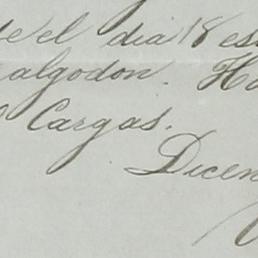 el dia 18 es
algodon. Ha
Cargas.
Dicen